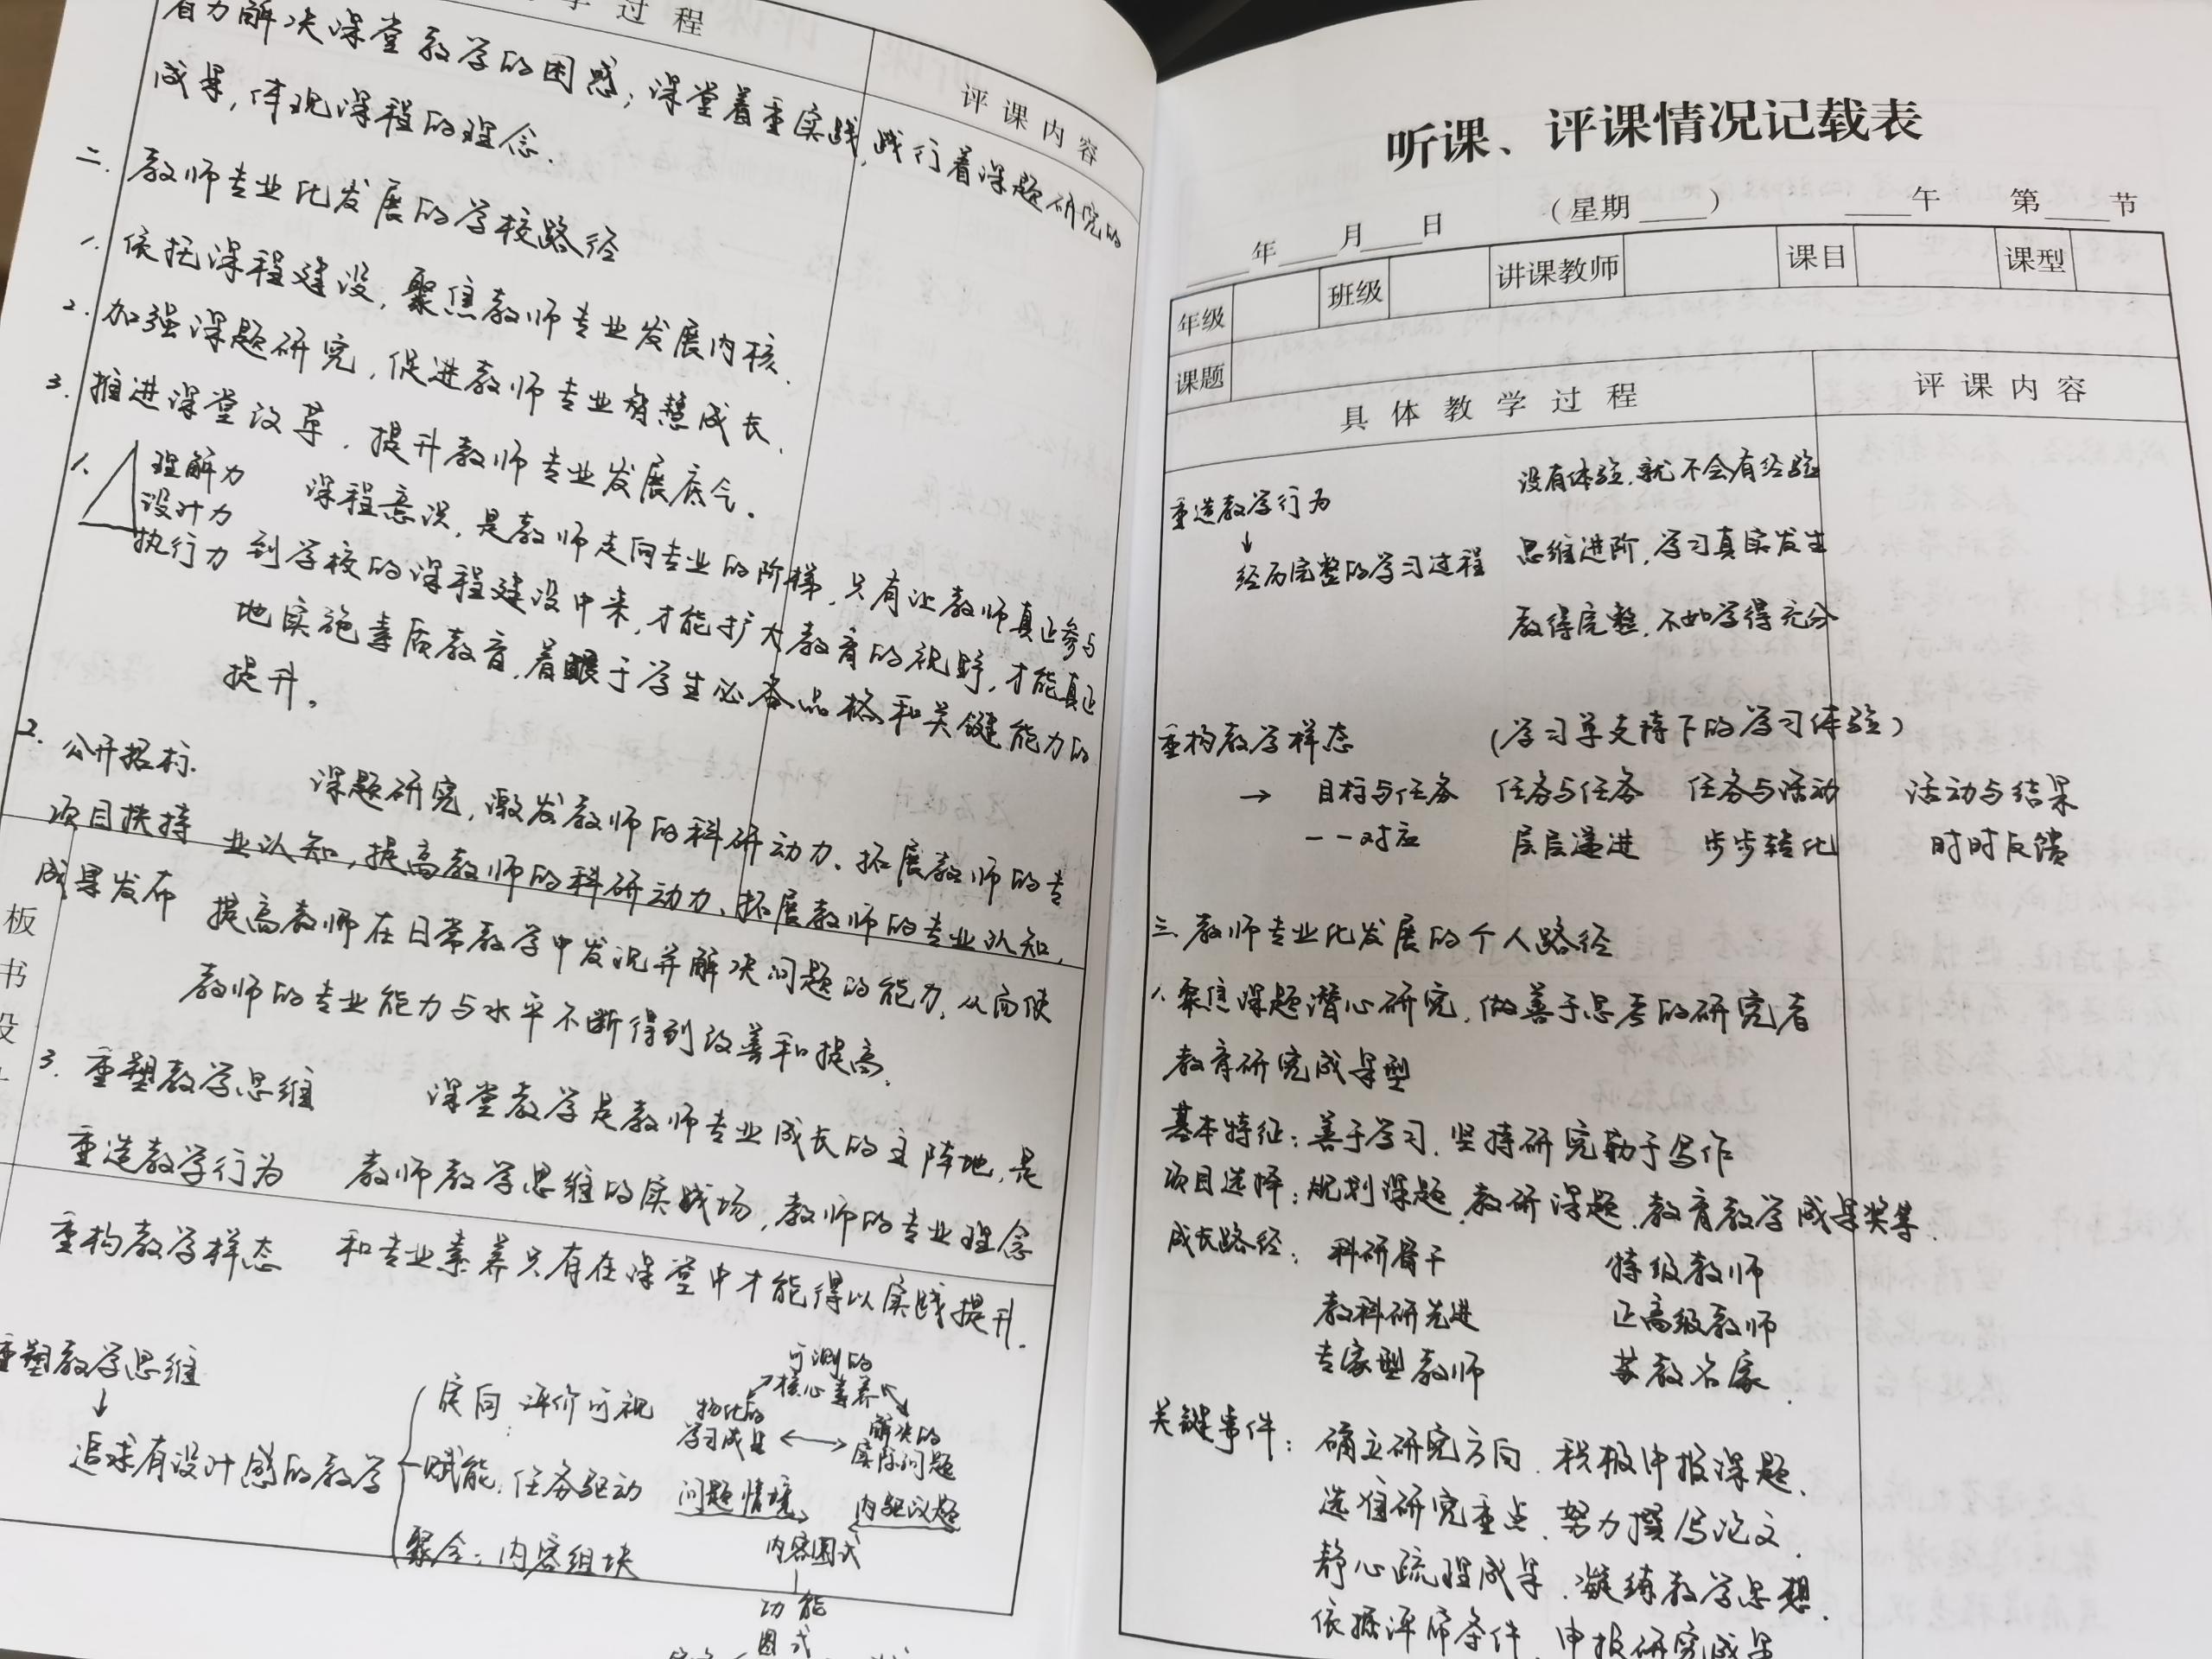 学过程
评课内容
着力解决课堂教学的困惑；课堂着重实践，践行着课题研究的
成果，体现课程的理念.
二. 教师专业化发展的学校路径
1. 依托课程建设，聚焦教师专业发展内核.
2. 加强课题研究，促进教师专业智慧成长.
3. 推进课堂改革，提升教师专业发展底气.
1. 理解力 课程意识，是教师走向专业的阶梯，只有让教师真正参与
设计力
执行力 到学校的课程建设中来，才能扩大教育的视野，才能真正
地实施素质教育，着眼于学生必备品格和关键能力的
提升。
2. 公开招标. 课题研究，激发教师的科研动力、拓展教师的专
项目扶持 业认知，提高教师的科研动力、拓展教师的专业认知，
成果发布 提高教师在日常教学中发现并解决问题的能力，从而使
教师的专业能力与水平不断得到改善和提高.
板
书
设
3. 重塑教学思维 课堂教学是教师专业成长的主阵地，是
重造教学行为 教师教学思维的实战场，教师的专业理念
重构教学样态 和专业素养只有在课堂中才能得以实践提升.
重塑教学思维
↓
追求有设计感的教学
定向：评价可视
赋能：任务驱动
聚合：内容组块
可测的
核心素养
物化的
学习成果
解决的
实际问题
问题情境
内驱议题
内容图式
功能
图式
听课、评课情况记载表
年 月 日 （星期 ） 午 第 节
年级 班级 讲课教师 课目 课型
课题
具体教学过程 评课内容
重造教学行为
↓
经历完整的学习过程
没有体验，就不会有经验
思维进阶，学习真实发生
教得完整，不如学得充分
重构教学样态 (学习单支持下的学习体验)
→ 目标与任务 任务与任务 任务与活动 活动与结果
一一对应 层层递进 步步转化 时时反馈
三. 教师专业化发展的个人路径
1. 聚焦课题潜心研究，做善于思考的研究者
教育研究成果型
基本特征：善于学习，坚持研究勤于写作
项目选择：规划课题、教研课题、教育教学成果奖等.
成长路径：科研骨干 特级教师
教科研先进 正高级教师
专家型教师 苏教名家.
关键事件：确立研究方向、积极申报课题.
选准研究重点、努力撰写论文.
静心疏理成果、凝练教学思想.
依据评审条件、申报研究成果